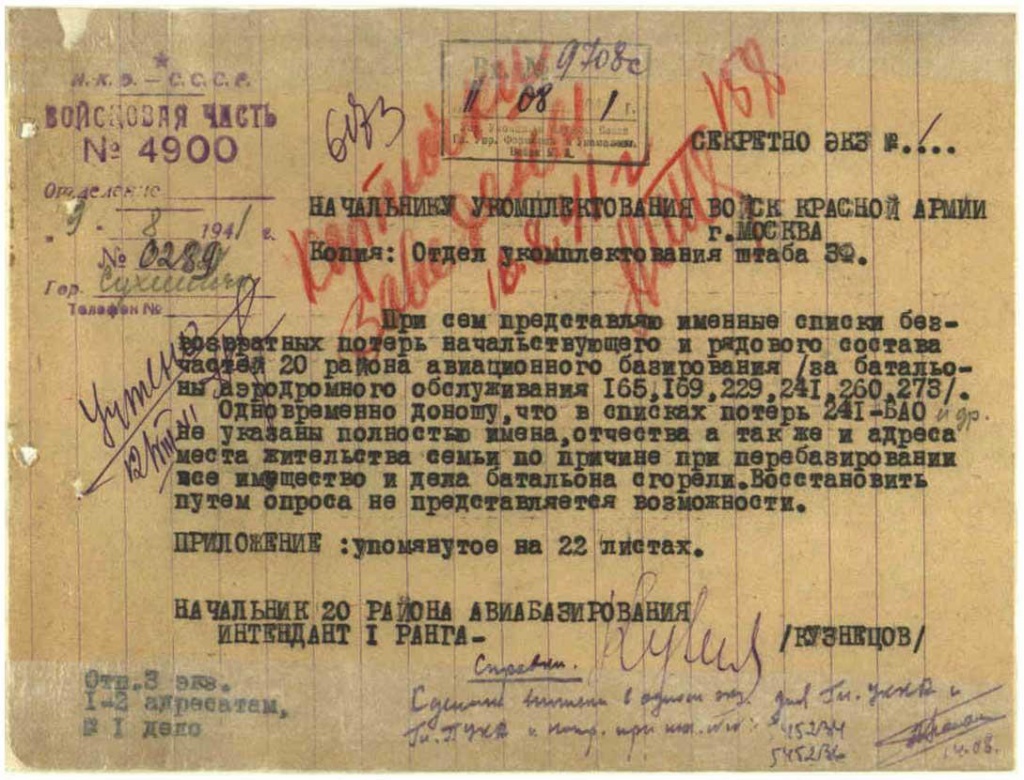 Н.К.О. — С.С.С.Р.
ВОЙСКОВАЯ ЧАСТЬ
№ 4900
Отделение
"9" 8 1941 г.
№ 0289
Гор. Сухиничи
Телефон №
Вх. № 9708с
11 08 1941 г.
6073
158
СЕКРЕТНО ЭКЗ №.1...
НАЧАЛЬНИКУ УКОМПЛЕКТОВАНИЯ ВОЙСК КРАСНОЙ АРМИИ
г.МОСКВА
Копия: Отдел укомплектования штаба ЗФ.
При сем представляю именные списки без-
возвратных потерь начальствующего и рядового состава
частей 20 района авиационного базирования /за батальо-
ны аэродромного обслуживания 165,169,229,241,260,273/.
Одновременно доношу,что в списках потерь 241-БАО и др.
не указаны полностью имена,отчества а так же и адреса
места жительства семьи по причине при перебазировании
все имущество и дела батальона сгорели.Восстановить
путем опроса не представляется возможности.
Учтено
ПРИЛОЖЕНИЕ :упомянутое на 22 листах.
НАЧАЛЬНИК 20 РАЙОНА АВИАБАЗИРОВАНИЯ
ИНТЕНДАНТ I РАНГА- /КУЗНЕЦОВ/
Отп.3 экз.
1-2 адресатам,
№ 1 дело
Справка.
в одном экз. для Гл. и
Гл. П и напр. при 45234
545236
14.08.